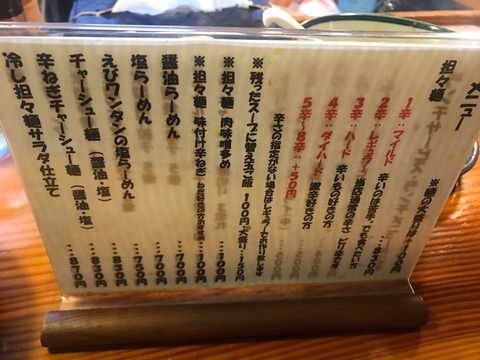 メニュー
担々麺
※麺の大盛りは+100円
1辛 マイルド
2辛 レギュラー 辛いのは苦手、でも食べたい方 …830円
3辛 ハード 適度な辛さ ピリ辛です
4辛 ダイハード 辛いもの好きの方
5辛〜8辛 +50円 激辛好きの方
辛さの指定がない場合はレギュラーでお作り致します
※残ったスープに替え玉ご飯 100円 大盛り+150円
※担々麺 肉味噌多め …+100円
※担々麺 味付け辛ねぎ …+100円
醤油らーめん …700円
塩らーめん …700円
えびワンタンの塩らーめん …750円
チャーシュー麺（醤油・塩） …830円
辛ねぎチャーシュー麺（醤油・塩） …830円
冷し担々麺サラダ仕立て …870円